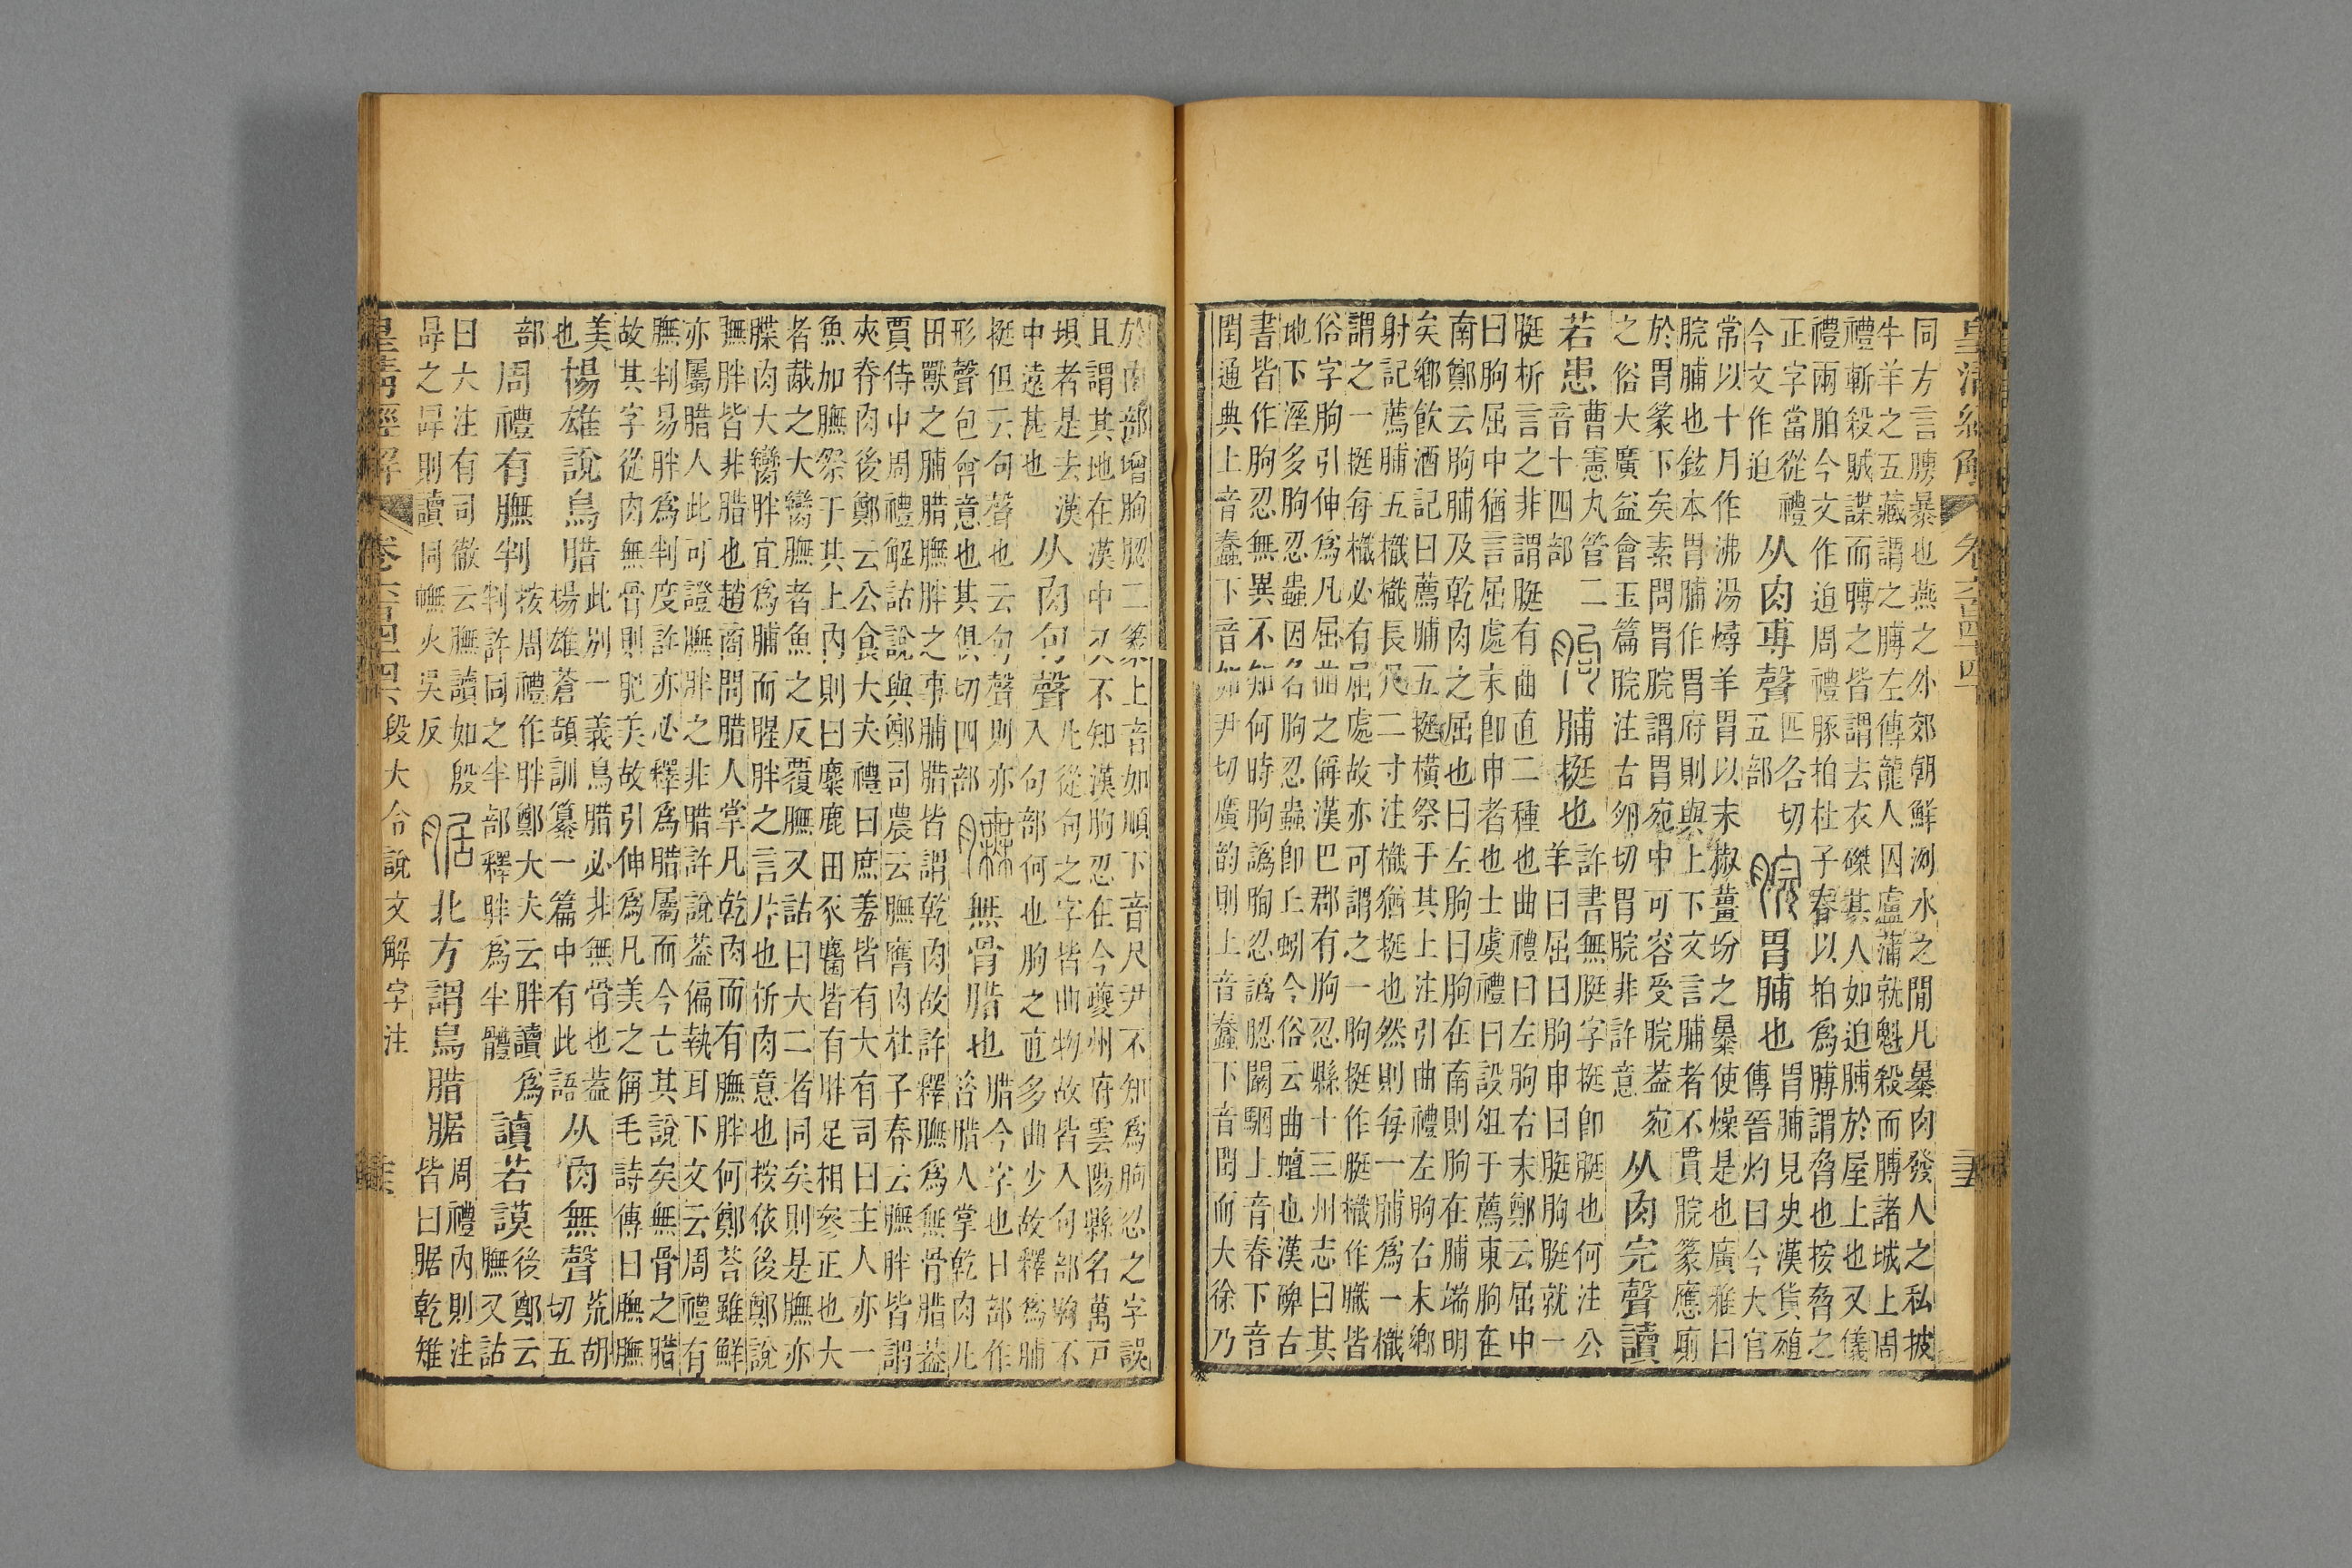 皇清經解　卷六百四十四
同方言膊暴也燕之外郊朝鮮洌水之閒凡暴肉發人之私披
牛羊之五藏謂之膊左傳龍人囚盧蒲就魁殺而膊諸城上周
禮斬殺賊諜而膊之皆謂去衣磔其人如迫膊於屋上也又儀
禮兩胉今文作迫周禮豚拍杜子春以拍爲膊謂脅也按脅之
正字當從禮今文作迫从肉尃聲匹各切五部脘胃脯也胃脯見史漢貨殖傳晉灼曰今大官
常以十月作沸湯燖羊胃以末椒薑坋之暴使燥是也廣雅曰
脘脯也鉉本胃脯作胃府則與上下文言脯者不貫脘篆應廁
於胃篆下矣素問胃脘謂胃宛中可容受脘葢宛之俗大廣益會玉篇脘注古卵切胃脘非許意从肉完聲讀
若患曹憲丸管二音十四部朐脯挺也許書無脡字挺卽脡也何注公羊曰屈曰朐申曰脡朐脡就一
脡析言之非謂脡有曲直二種也曲禮曰左朐右末鄭云屈中
曰朐屈中猶言屈處末卽申者也士虞禮曰設俎于薦東朐在
南鄭云朐脯及乾肉之屈也曰左朐曰朐在南則朐在脯端明
矣鄉飮酒記曰薦脯五挺橫祭于其上注引曲禮左朐右末鄉
射記薦脯五樴樴長尺二寸注樴猶挺也然則每一脯爲一樴
謂之一挺每樴必有屈處故亦可謂之一朐挺作脡樴作膱皆
俗字朐引伸爲凡屈曲之偁漢巴郡有朐忍縣十三州志曰其
地下溼多朐忍蟲因名朐忍蟲卽丘蚓今俗云曲蟺也漢碑古
書皆作朐忍無異不知何時朐譌䐃忍譌䏰闞駰上音春下音
閏通典上音蠢下音如尹切廣韵則上音蠢下音閏而大徐乃
於肉部增朐䏰二篆上音如順下音尺尹不知爲朐忍之字誤
且謂其地在漢中又不知漢朐忍在今夔州府雲陽縣名萬戸
垻者是去漢中遠甚也从肉句聲此從句之字皆曲物故皆入句部朐不入句部何也朐之直多曲少故釋爲脯
挺但云句聲也云句聲則亦形聲包會意也其俱切四部膴無骨腊也腊今字也日部作昝腊人掌乾肉凡
田獸之脯腊膴胖之事脯腊皆謂乾肉故許釋膴爲無骨腊葢
賈侍中周禮解詁說與鄭司農云膴膺肉杜子春云膴胖皆謂
夾脊肉後鄭云公食大夫禮曰庶羞皆有大有司曰主人亦一
魚加膴祭于其上內則曰麋鹿田豕麕皆有胖足相參正也大
者胾之大臠膴者魚之反覆膴又詁曰大二者同矣則是膴亦
牒肉大臠胖宜爲脯而腥胖之言片也析肉意也按依後鄭說
膴胖皆非腊也趙商問腊人掌凡乾肉而有膴胖何鄭荅雖鮮
亦屬腊人此可證膴胖之非腊許說葢偏執耳下文云周禮有
膴判易胖爲判度許亦必釋爲腊屬而今亡其說矣無骨之腊
故其字從肉無骨則肥美故引伸爲凡美之偁毛詩傳曰膴膴
美也揚雄說鳥腊此別一義鳥腊必非無骨也葢楊雄蒼頡訓纂一篇中有此語从肉無聲荒胡切五
部周禮有膴判按周禮作胖鄭大夫云胖讀爲判許同之半部釋胖爲半體讀若謨後鄭云膴又詁
曰大注有司徹云膴讀如殷冔之冔則讀同幠火吳反腒北方謂鳥腊腒周禮內則注皆曰腒乾雉
皇清經解　卷六百四十四　段大令說文解字注